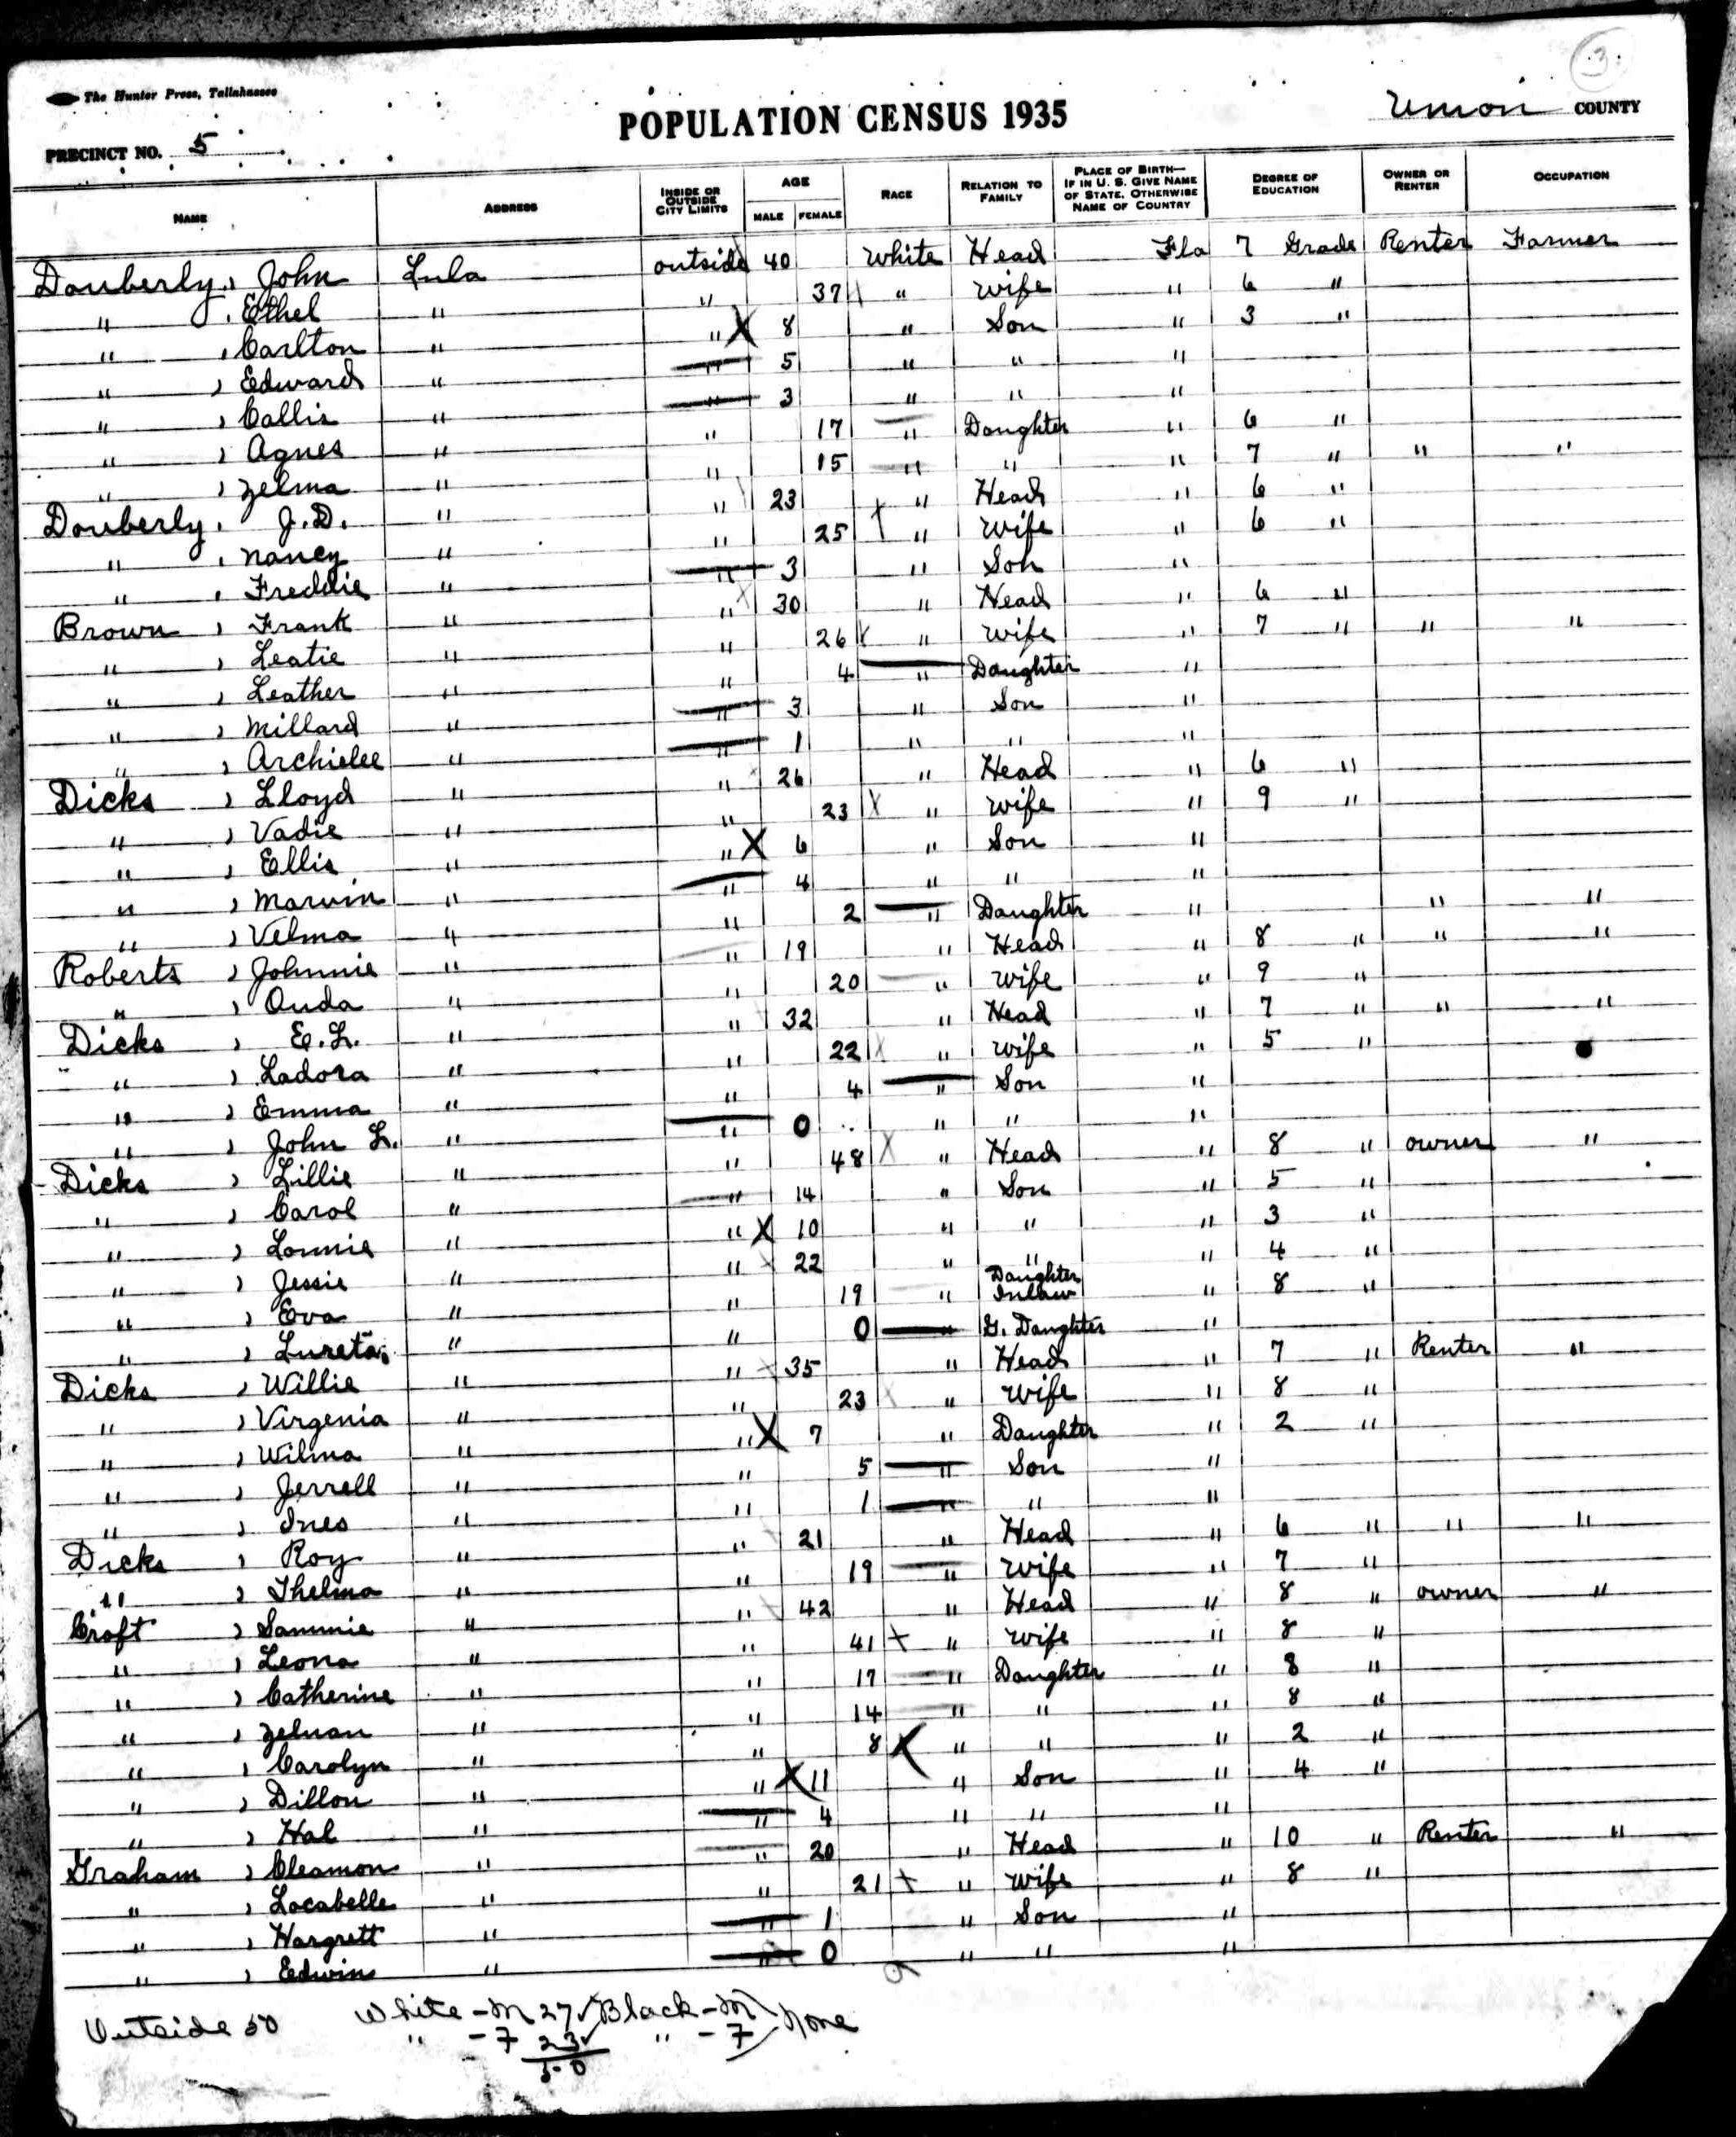 3.
The Hunter Press, Tallahassee
POPULATION CENSUS 1935
Union COUNTY
PRECINCT NO. 5
NAME ADDRESS INSIDE OR OUTSIDE CITY LIMITS AGE MALE FEMALE RACE RELATION TO FAMILY PLACE OF BIRTH— IF IN U. S. GIVE NAME OF STATE, OTHERWISE NAME OF COUNTRY DEGREE OF EDUCATION OWNER OR RENTER OCCUPATION
Douberly, John Lula outside 40 White Head Fla 7 Grade Renter Farmer
" , Ethel " " 37 " Wife " 6 "
" , Carlton " " X 8 " Son " 3 "
" , Edward " " 5 " " "
" , Callis " " 3 " " "
" , Agnes " " 17 " Daughter " 6 "
" , Zelma " " 15 " " " 7 " " "
Douberly, J.D. " " 23 " Head " 6 "
" , Nancy " " 25 " Wife " 6 "
" , Freddie " " 3 " Son "
Brown , Frank " " 30 " Head " 6 "
" , Leatie " " 26 X " Wife " 7 " " "
" , Leather " " 4 " Daughter "
" , Millard " " 3 " Son "
" , Archielee " " 1 " " "
Dicks , Lloyd " " 26 " Head " 6 "
" , Vadie " " 23 X " Wife " 9 "
" , Ellis " " X 6 " Son "
" , Marvin " " 4 " " "
" , Velma " " 2 " Daughter " " "
Roberts , Johnnie " " 19 " Head " 8 " " "
" , Ouda " " 20 " Wife " 9 "
Dicks , E.L. " " 32 " Head " 7 " " "
" , Ladora " " 22 X " Wife " 5 "
" , Emma " " 4 " Son "
" , John L. " " 0 " " "
Dicks , Lillie " " 48 X " Head " 8 " owner "
" , Carol " " 14 " Son " 5 "
" , Lonnie " " X 10 " " " 3 "
" , Jessie " " 22 " " " 4 "
" , Eva " " 19 " Daughter Inlaw " 8 "
" , Lureta " " 0 " G. Daughter "
Dicks , Willie " " 35 " Head " 7 " Renter "
" , Virgenia " " 23 " Wife " 8 "
" , Wilma " " X 7 " Daughter " 2 "
" , Jerrell " " 5 " Son "
" , Ines " " 1 " " "
Dicks , Roy " " 21 " Head " 6 " " "
" , Thelma " " 19 " Wife " 7 "
Croft , Sammie " " 42 " Head " 8 " owner "
" , Leona " " 41 X " Wife " 8 "
" , Catherine " " 17 " Daughter " 8 "
" , Zeluan " " 14 " " " 8 "
" , Carolyn " " 8 X " " " 2 "
" , Dillon " " X 11 " Son " 4 "
" , Hal " " 4 " " "
Graham , Cleamon " " 20 " Head " 10 " Renter "
" , Locabelle " " 21 X " Wife " 8 "
" , Hargrett " " 1 " Son "
" , Edwin " " 0 " " "
Outside 50 White - M 27 ✓ Black - M
" - F 23 ✓ " - F None
50